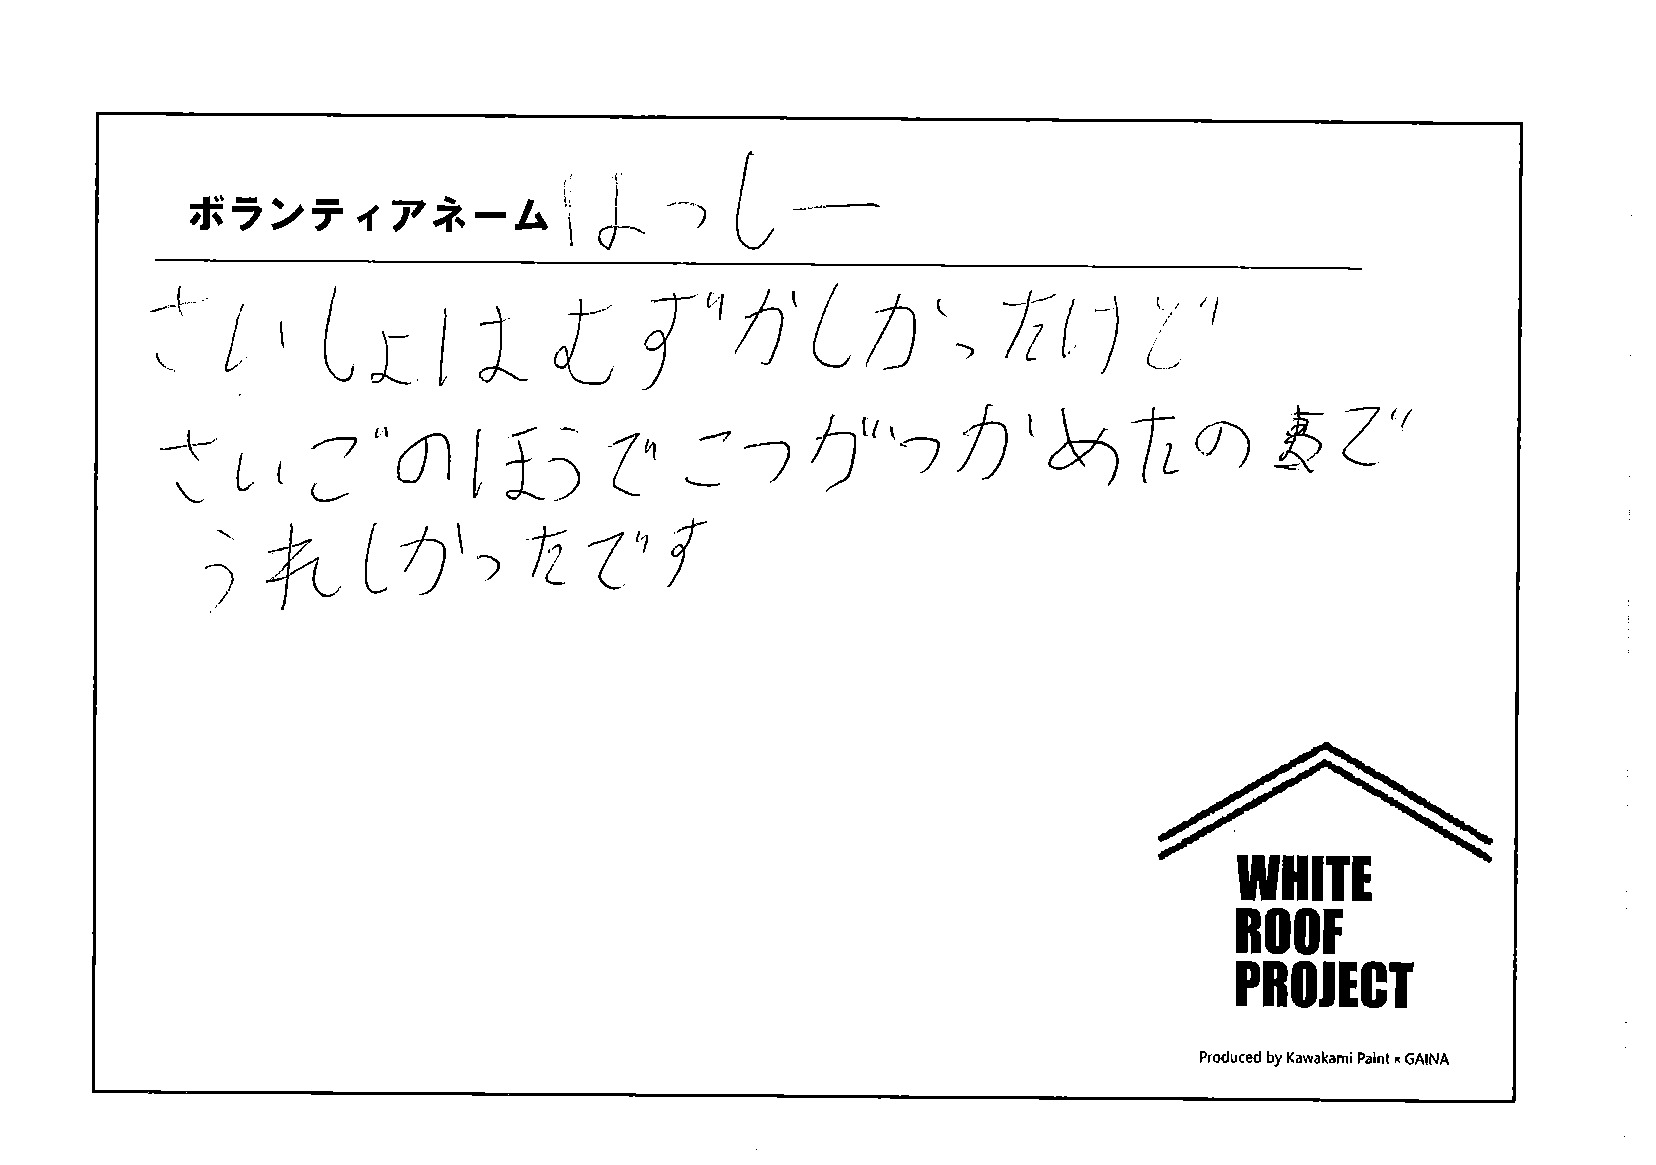 ボランティアネーム はっしー
さいしょはむずかしかったけど
さいごのほうでこつがつかめたので
うれしかったです
WHITE
ROOF
PROJECT
Produced by Kawakami Paint × GAINA